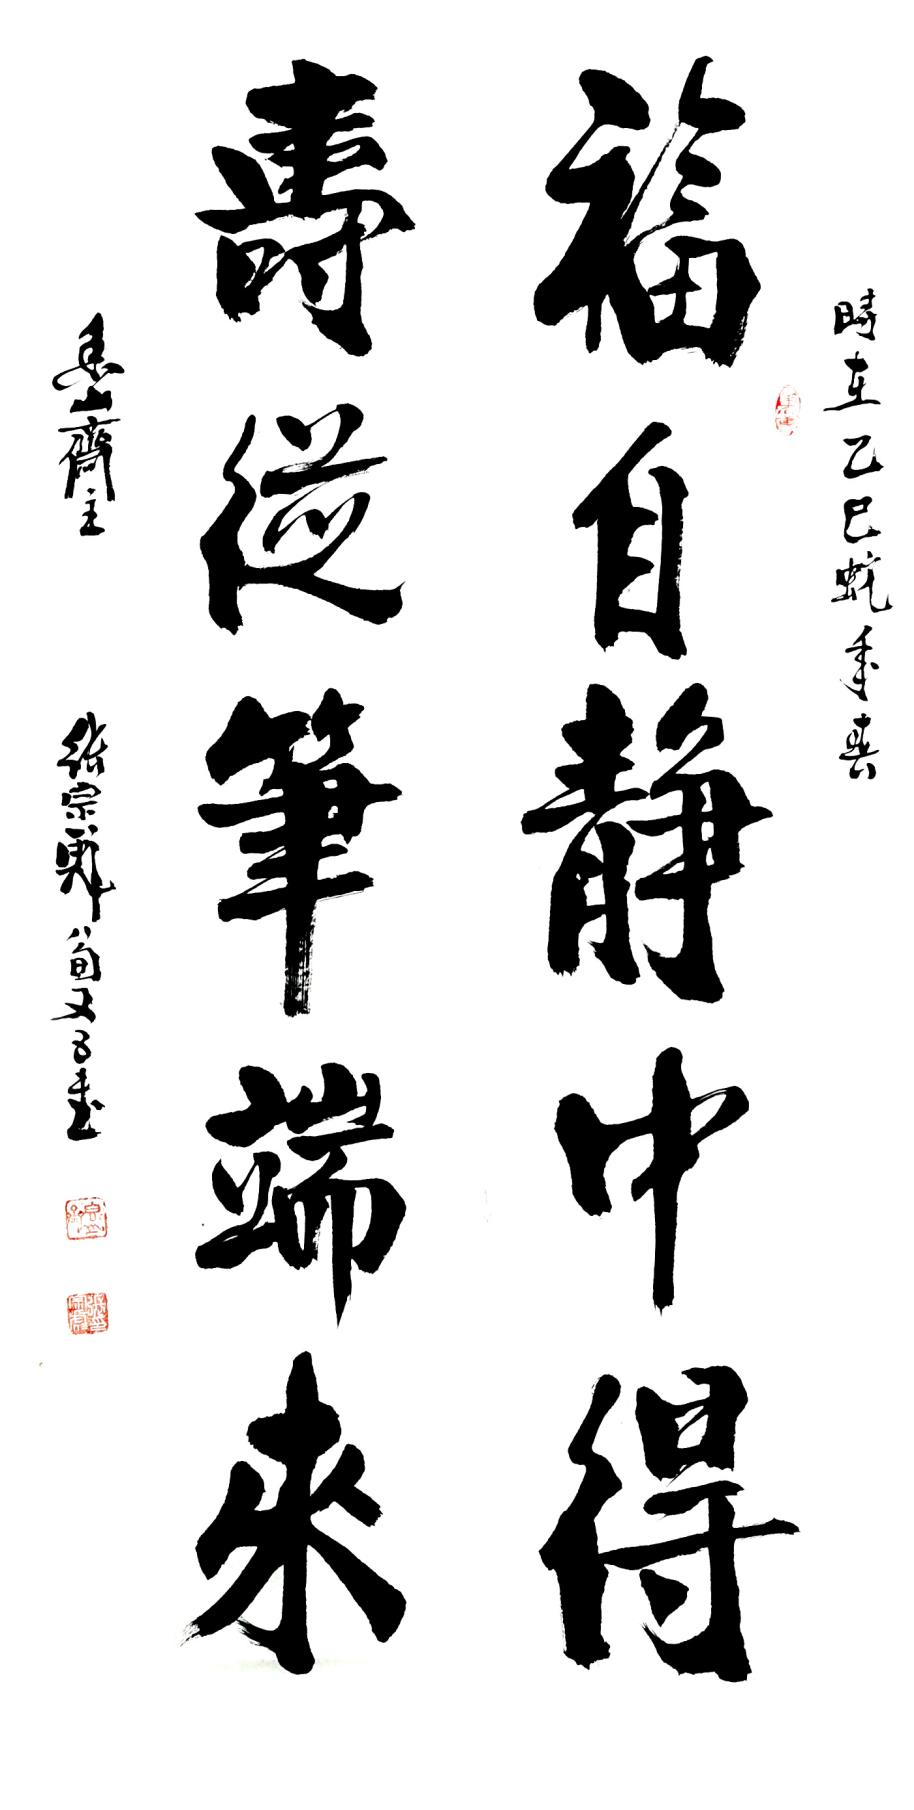 時在乙巳蛇年春
福自靜中得
壽從筆端來
山齋主
張宗彪八旬又五書